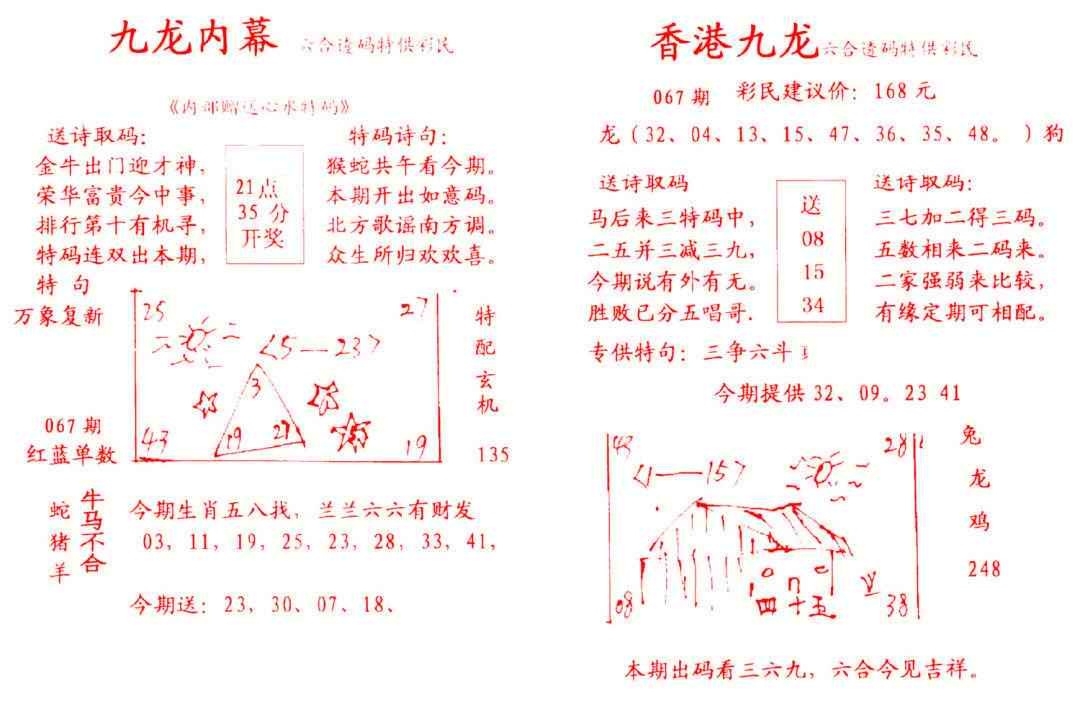 九龙内幕 六合透码特供彩民
《内部赠送心水特码》
送诗取码：
金牛出门迎才神，
荣华富贵今中事，
排行第十有机寻，
特码连双出本期，
特句
万象复新
21点
35分
开奖
特码诗句：
猴蛇共午看今期。
本期开出如意码。
北方歌谣南方调。
众生所归欢欢喜。
25
27
<5—23>
3
19
21
43
19
特配玄机
135
067期
红蓝单数
蛇猪羊
牛马不合
今期生肖五八找，兰兰六六有财发
03，11，19，25，23，28，33，41，
今期送：23，30，07，18、
香港九龙 六合透码特供彩民
067期 彩民建议价：168元
龙（32、04、13、15、47、36、35、48。）狗
送诗取码
马后来三特码中，
二五并三减三九，
今期说有外有无。
胜败已分五唱哥.
送
08
15
34
送诗取码：
三七加二得三码。
五数相来二码来。
二家强弱来比较，
有缘定期可相配。
专供特句：三争六斗
今期提供32、09。23 41
43
28
<1—15>
四十五
08
38
兔
龙
鸡
248
本期出码看三六九，六合今见吉祥。